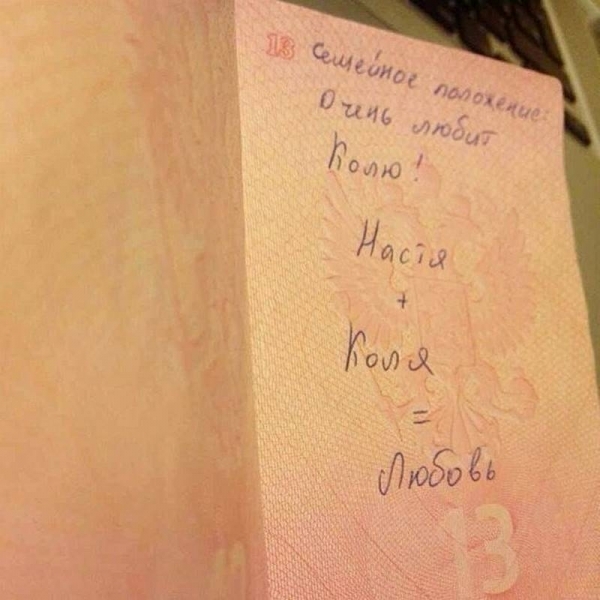 13 Семейное положение:
Очень любит
Колю!
Настя
+
Коля
=
Любовь
13